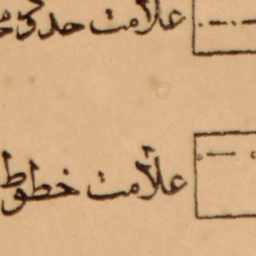 علامت حدود
علامت خطوط